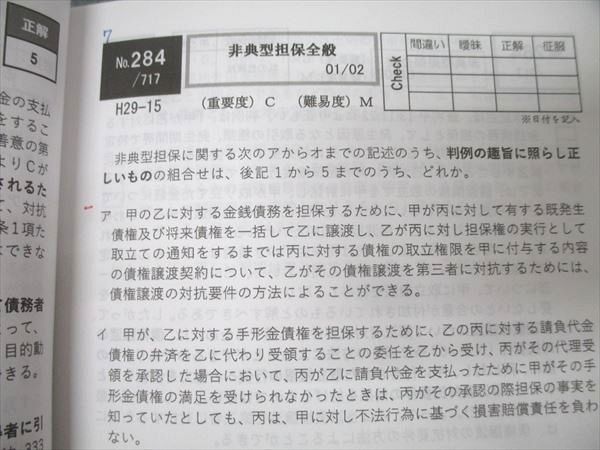 正解
5
金の支払
をするこ
善意の第
よりCが
されるた
て、対抗
条1項た
はできな
債務者
よって、
目的動
きる。
者に引
333
7
No.284
/717
非典型担保全般
01/02
Check
間違い 曖昧 正解 征服
※日付を記入
H29-15 (重要度) C (難易度) M
非典型担保に関する次のアからオまでの記述のうち、判例の趣旨に照らし正
しいものの組合せは、後記1から5までのうち、どれか。
ア 甲の乙に対する金銭債務を担保するために、甲が丙に対して有する既発生
債権及び将来債権を一括して乙に譲渡し、乙が丙に対し担保権の実行として
取立ての通知をするまでは丙に対する債権の取立権限を甲に付与する内容
の債権譲渡契約について、乙がその債権譲渡を第三者に対抗するためには、
債権譲渡の対抗要件の方法によることができる。
イ 甲が、乙に対する手形金債権を担保するために、乙の丙に対する請負代金
債権の弁済を乙に代わり受領することの委任を乙から受け、丙がその代理受
領を承認した場合において、丙が乙に請負代金を支払ったために甲がその手
形金債権の満足を受けられなかったときは、丙がその承認の際担保の事実を
知っていたとしても、丙は、甲に対し不法行為に基づく損害賠償責任を負わ
ない。